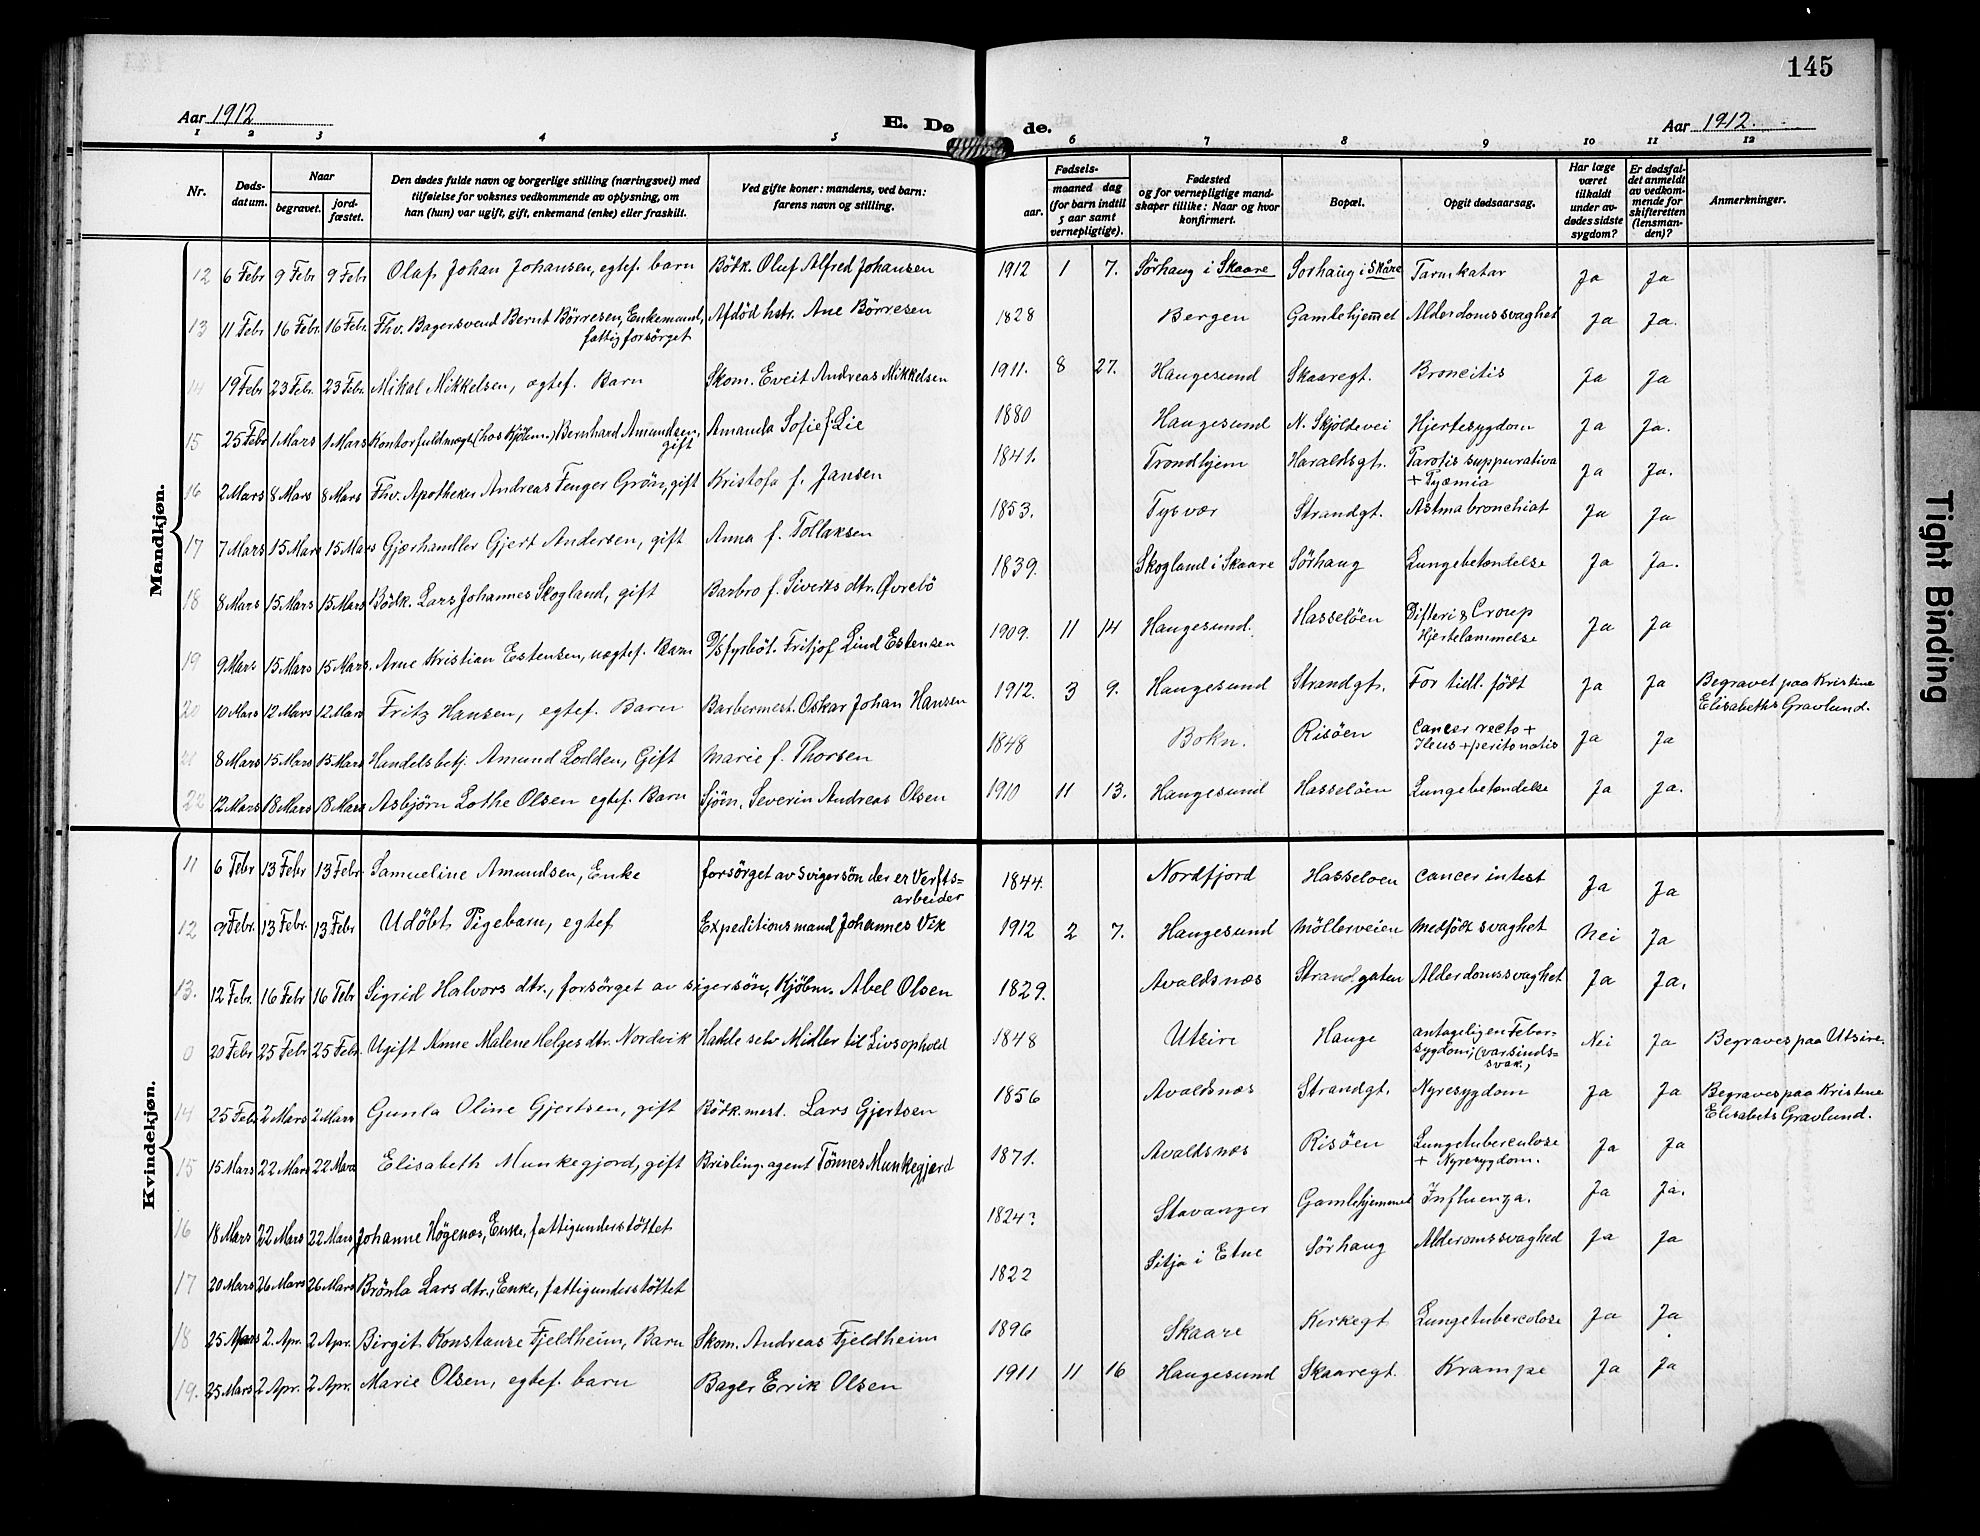 145
Aar 1912
E. Dø de.
Aar 1912.
1 2 3 4 5 6 7 8 9 10 11 12
Nr.
Døds-
datum.
Naar
begravet.
jord-
fæstet.
Den dødes fulde navn og borgerlige stilling (næringsvei) med
tilføielse for voksnes vedkommende av oplysning, om
han (hun) var ugift, gift, enkemand (enke) eller fraskilt.
Ved gifte koner: mandens, ved barn:
farens navn og stilling.
Fødsels-
aar.
maaned dag
(for barn indtil
5 aar samt
vernepligtige).
Fødested
og for vernepligtige mand-
skaper tillike: Naar og hvor
konfirmert.
Bopæl.
Opgit dødsaarsag.
Har læge
været
tilkaldt
under av-
dødes sidste
sygdom?
Er dødsfal-
det anmeldt
av vedkom-
mende for
skifteretten
(lensman-
den)?
Anmerkninger.
Mandkjøn.
12 6 Febr 9 Febr 9 Febr Olaf Johan Johansen, egtef. barn Bödk. Oluf Alfred Johansen 1912 1 7. Sörhaug i Skaare Sorhaug i Skåre Tarmkatar Ja Ja
13 11 Febr 16 Febr. 16 Febr. Fhv. Bagersvend Bernt Börresen, Enkemand, fattigforsörget Afdöd hstr. Ane Börresen 1828 Bergen Gamlehjemmet Alderdomssvaghet Ja Ja.
14 19 Febr 23 Febr. 23 Febr. Mikal Mikkelsen, egtef. Barn Skom. Eveit Andreas Mikkelsen 1911. 8 27. Haugesund Skaaregt. Broncitis Ja Ja
15 25 Febr 1 Mars 1 Mars Kontorfuldmægt (hos Kjöbm.) Bernhard Amundsen, gift Amanda Sofie f. Lie 1880 Haugesund N. Skjoldevei Hjertesygdom Ja Ja.
16 2 Mars 8 Mars 8 Mars Fhv. Apotheker Andreas Fenger Grön, gift Kristofa f. Jansen 1841. Trondhjem Haraldsgt. Parotis suppurativa + Pyæmia Ja Ja.
17 7 Mars 15 Mars 15 Mars Gjærhandler Gjert Andersen, gift Anna f. Tollaksen 1853. Tysvær Strandgt. Astma bronchiat Ja Ja
18 8 Mars 15 Mars 15 Mars Bödk. Lars Johannes Skogland, gift Barbro f. Siverts dtr. Övrebö 1839. Skogland i Skaare Sörhaug Lungebetændelse Ja Ja.
19 9 Mars 15 Mars 15 Mars. Arne Kristian Estensen, uegtef. Barn D/S fyrböt. Fritjof Lind Estensen 1909. 11 14 Haugesund. Hasselöen Difteri & Croup Hjertelammelse Ja Ja
20 10 Mars 12 Mars 12 Mars Fritz Hansen, egtef. Barn Barbermest. Oskar Johan Hansen 1912. 3 9. Haugesund Strandgt. For tidl. födt Ja Ja Begravet paa Kristine Elisabeths Gravlund.
21 8 Mars 15 Mars 15 Mars Handelsbetj. Amund Lodden, Gift Marie f. Thorsen 1848 Bokn. Risöen Cancer recto + Ileus + peritonatis Ja Ja
22 12 Mars 18 Mars 18 Mars Asbjörn Lothe Olsen egtef. Barn Sjöm. Severin Andreas Olsen 1910 11 13. Haugesund Hasselöen Lungebetændelse Ja Ja.
Kvindekjøn.
11 6 Febr 13 Febr 13 Febr. Samueline Amundsen, Enke forsörget av Svigersön der er Verfts=arbeider 1844. Nordfjord Hasseloen Cancer intest Ja Ja
12 9 Febr. 13 Febr. 13 Febr Udöbt Pigebarn, egtef Expeditionsmand Johannes Vik 1912 2 7. Haugesund Möllerveien Medfödt svaghet Nei Ja
13. 12 Febr. 16 Febr 16 Febr Sigrid Halvors dtr., forsörget av sigersön, Kjöbm. Abel Olsen 1829. Avaldsnæs Strandgaten Alderdomssvaghet Ja Ja.
0 20 Febr 25 Febr 25 Febr. Ugift Anne Malene Helges dtr. Nordvik Hadde selv Midler til Livsophold 1848 Utsire Hauge antagelig en Feber-sygdom, (var sinds=svak, Nei Ja Begraves paa Utsire.
14 25 Febr 2 Mars 2 Mars Gunla Oline Gjertsen, gift Bödk. mest. Lars Gjertsen 1856 Avaldsnæs Strandgt. Nyresygdom Ja Ja Begraves paa Kristine Elisabets Gravlund.
15 15 Mars 22 Mars 22 Mars Elisabeth Munkegjord, gift Brisling. agent Tönnes Munkegjord 1871. Avaldsnæs Risöen Lungetuberculose + Nyresygdom. Ja Ja
16 18 Mars 22 Mars 22 Mars Johanne Högenæs, Enke, fattigunderstöttet 1824? Stavanger Gamlehjemmet Influenza. Ja Ja.
17 20 Mars 26 Mars 26 Mars Brönla Lars dtr., Enke, fattigunderstöttet 1822 Sitja i Etne Sörhaug Alderomssvaghed Ja Ja
18 25 Mars 2. Apr. 2 Apr. Birgit Konstanse Fjeldheim, Barn Skom. Andreas Fjeldheim 1896 Skaare Kirkegt Lungetuberculose Ja Ja
19. 25 Mars 2 Apr. 2 Apr. Marie Olsen, egtef. barn Bager Erik Olsen 1911 11 16 Haugesund Skaaregt. Krampe Ja Ja
Tight Binding